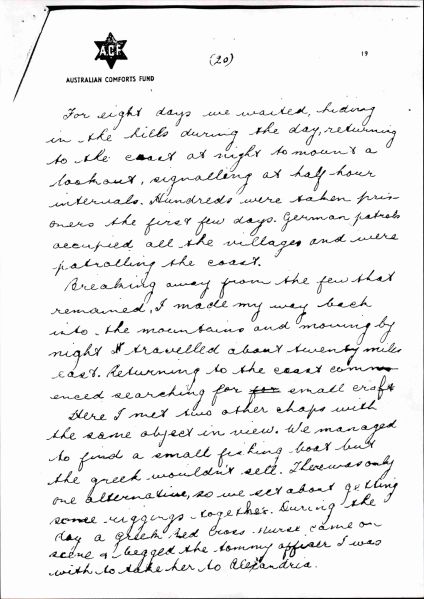 A.C.F.
AUSTRALIAN COMFORTS FUND
(20)
19
For eight days we waited, hiding
in the hills during the day, returning
to the coast at night to mount a
lookout, signalling at half hour
intervals. Hundreds were taken pris-
oners the first few days. German patrols
occupied all the villages and were
patrolling the coast.
Breaking away from the few that
remained, I made my way back
into the mountains and moving by
night I travelled about twenty miles
east. Returning to the coast comm-
enced searching for for small craft
Here I met two other chaps with
the same object in view. We managed
to find a small fishing boat but
the greek wouldn't sell. There was only
one alternative, so we set about getting
some riggings together. During the
day a Greek Red Cross nurse came on
scene & begged the tommy officer I was
with to take her to Alexandria.